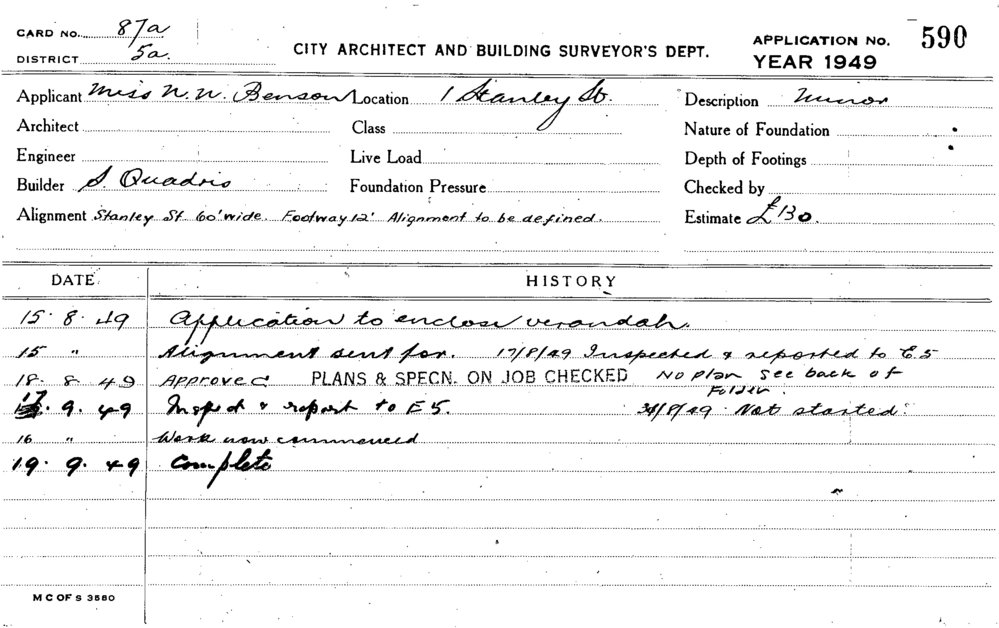 CARD No. 87a
DISTRICT 5a.
CITY ARCHITECT AND BUILDING SURVEYOR'S DEPT.
APPLICATION No. 590
YEAR 1949
Applicant Miss N. W. Benson Location 1 Stanley St. Description Minor
Architect Class Nature of Foundation
Engineer Live Load Depth of Footings
Builder S. Quadrio Foundation Pressure Checked by
Alignment Stanley St. 60' wide. Footway 12' Alignment to be defined. Estimate £130.
DATE HISTORY
15. 8. 49 Application to enclose verandah.
15 " Alignment sent for. 17/8/49 Inspected & reported to E.5
18. 8 49 Approved PLANS & SPECN. ON JOB CHECKED No plan see back of
Folder.
. 9. 49 Inspect & report to E 5. /8/49 Not started.
16 " Work now commenced
19. 9. 49 Complete
M C OF S 3580